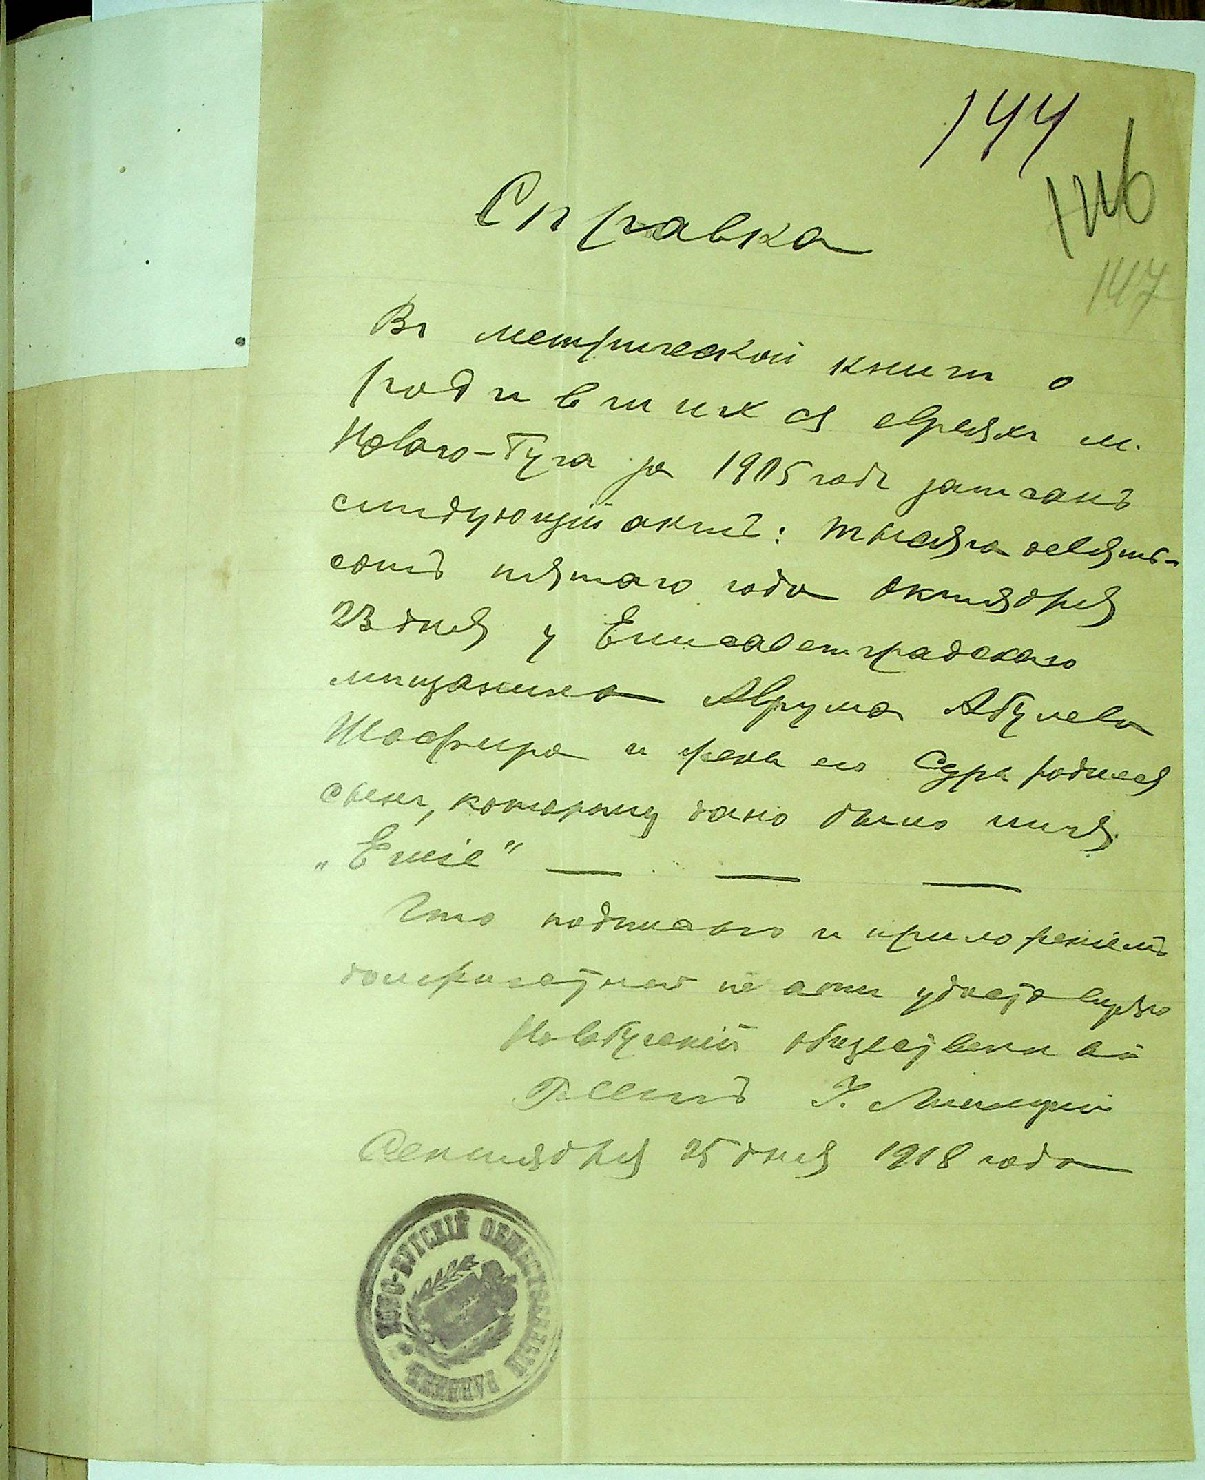 144
146
147
Справка
Въ метрической книгѣ о
родившихся евреяхъ м.
Новаго-Буга за 1905 годъ записанъ
слѣдующій актъ: тысяча девять-
сотъ пятаго года Октября
23 дня у Елисаветградскаго
мѣщанина Аврума Абулева
Шафира и жены его Сура родился
сынъ, которому дано было имя
„Еліе"
Что подписью и приложеніемъ
печати удостовѣряю
Новобугскій общественный
Раввинъ
Сентября 25 дня 1918 года
НОВО-БУГСКІЙ ОБЩЕСТВЕННЫЙ РАВВИНЪ